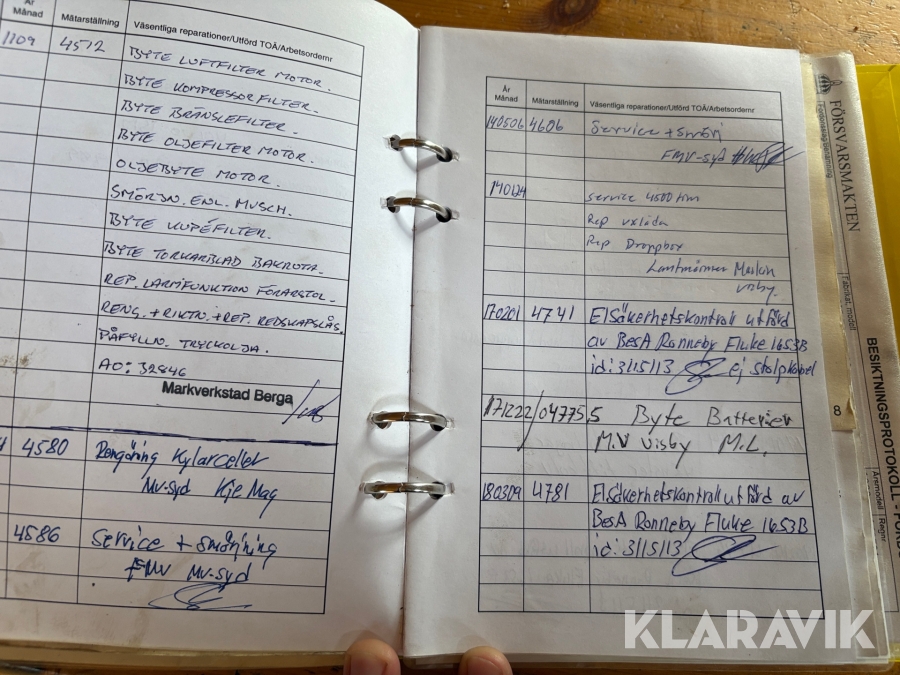 År
Månad
Mätarställning
Väsentliga reparationer/Utförd TOÄ/Arbetsordernr
1109
4572
BYTE LUFTFILTER MOTOR.
BYTE KOMPRESSOR FILTER.
BYTE BRÄNSLEFILTER.
BYTE OLJEFILTER MOTOR.
OLJEBYTE MOTOR.
SMÖRJN. ENL. MVSCH.
BYTE KUPÉFILTER.
BYTE TORKARBLAD BAKRUTA.
REP. LARMFUNKTION FÖRARSTOL.
RENG. + RIKTN. + REP. REDSKAPSLÅS.
PÅFYLLN. TRYCKOLJA.
AO: 32846
Markverkstad Berga
4580
Rengöring Kylarceller
MV-syd
4586
Service + smörjning
FMV MV-syd
År
Månad
Mätarställning
Väsentliga reparationer/Utförd TOÄ/Arbetsordernr
140506 4606
Service + smörj
FMV-syd
service 4500 tim
Rep växlåda
Rep Dropbox
visby.
170201 4741
Elsäkerhetskontroll utförd
av BesA Ronneby Fluke 1653B
id: 3/15/13
ej stolpkabel
171222/04775,5 Byte Batterier
M.V Visby M.L.
180309 4781
Elsäkerhetskontroll utförd av
BesA Ronneby Fluke 1653B
id: 3/15/13
8
FÖRSVARSMAKTEN
Fabrikat, modell
BESIKTNINGSPROTOKOLL - FORD
Årsmodell
Regnr
KLARAVIK